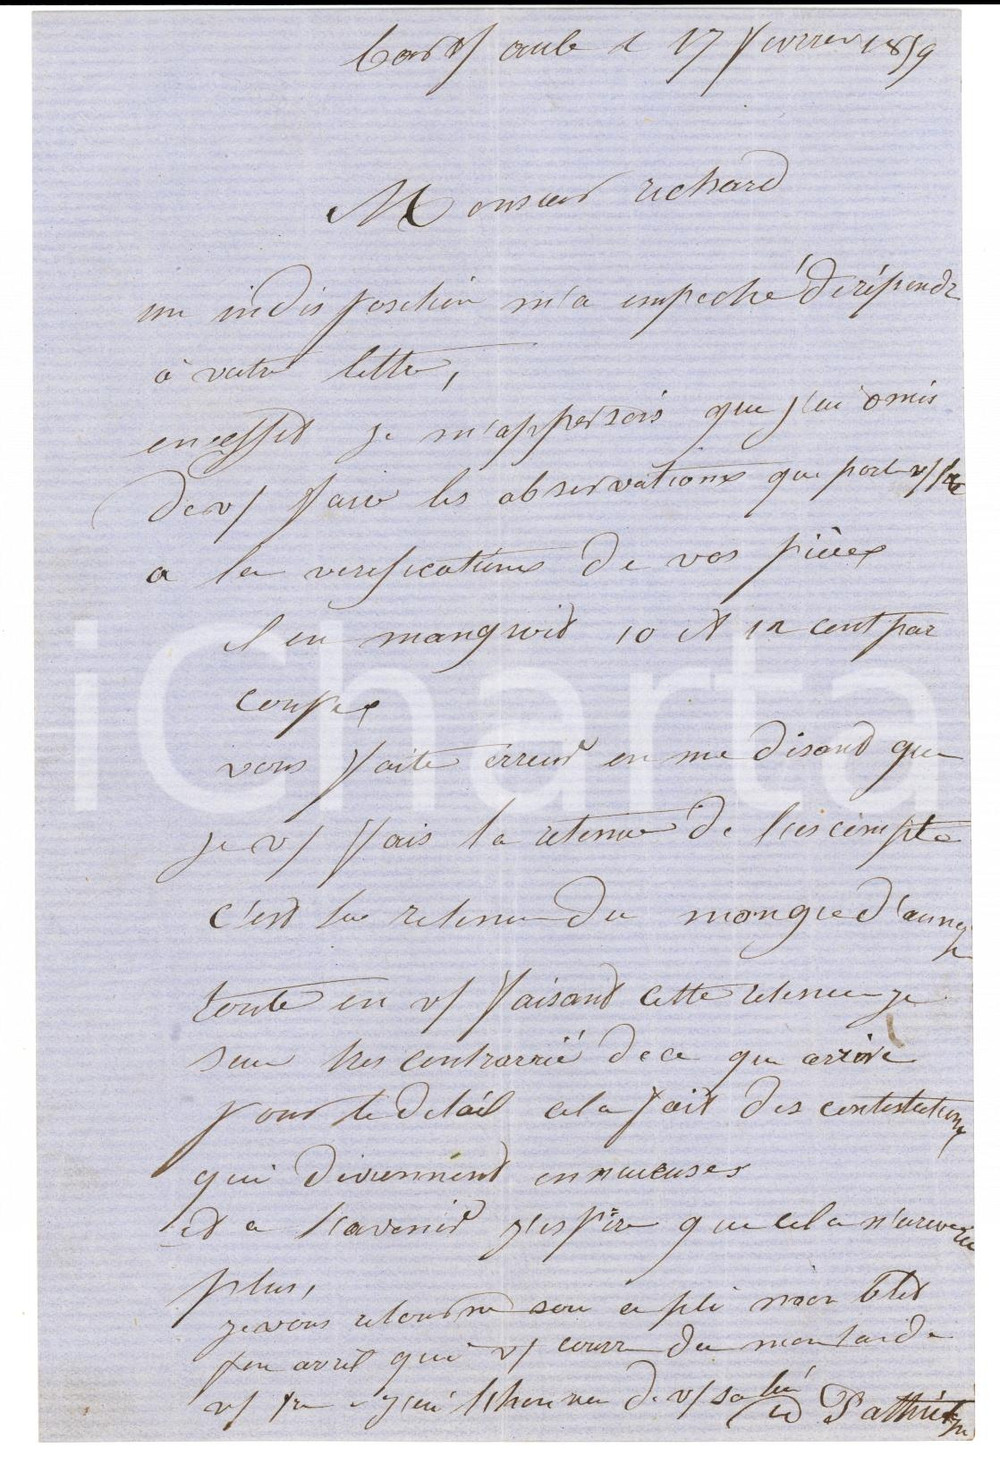 Bar s/ aube le 17 fevrier 1859
Monsieur richard
un indisposition m'a empeché de répondre
à votre lettre,
en effet je m'appersois que j'ai omis
de v/ faire les observations que porte v/ fre
a la verification de vos pièces
il en manquoit 10 et 12 cent par
coupes
vous faite erreur en me disant que
je v/ fais la retenue de l'escompte
c'est la retenue du manque d'aunage
toute en v/ faisant cette retenue je
suis tres contrarrié de ce qui arrive
pour le détail cela fait des contestations
qui deviennent ennuieuses
et a l'avenir j'espère que cela n'arrivera
plus,
je vous retourne sou ce pli mon blet
fin avril qui v/ couvre du montant de
v/ fre j'ai l'honneur de v/ salué
iCharta